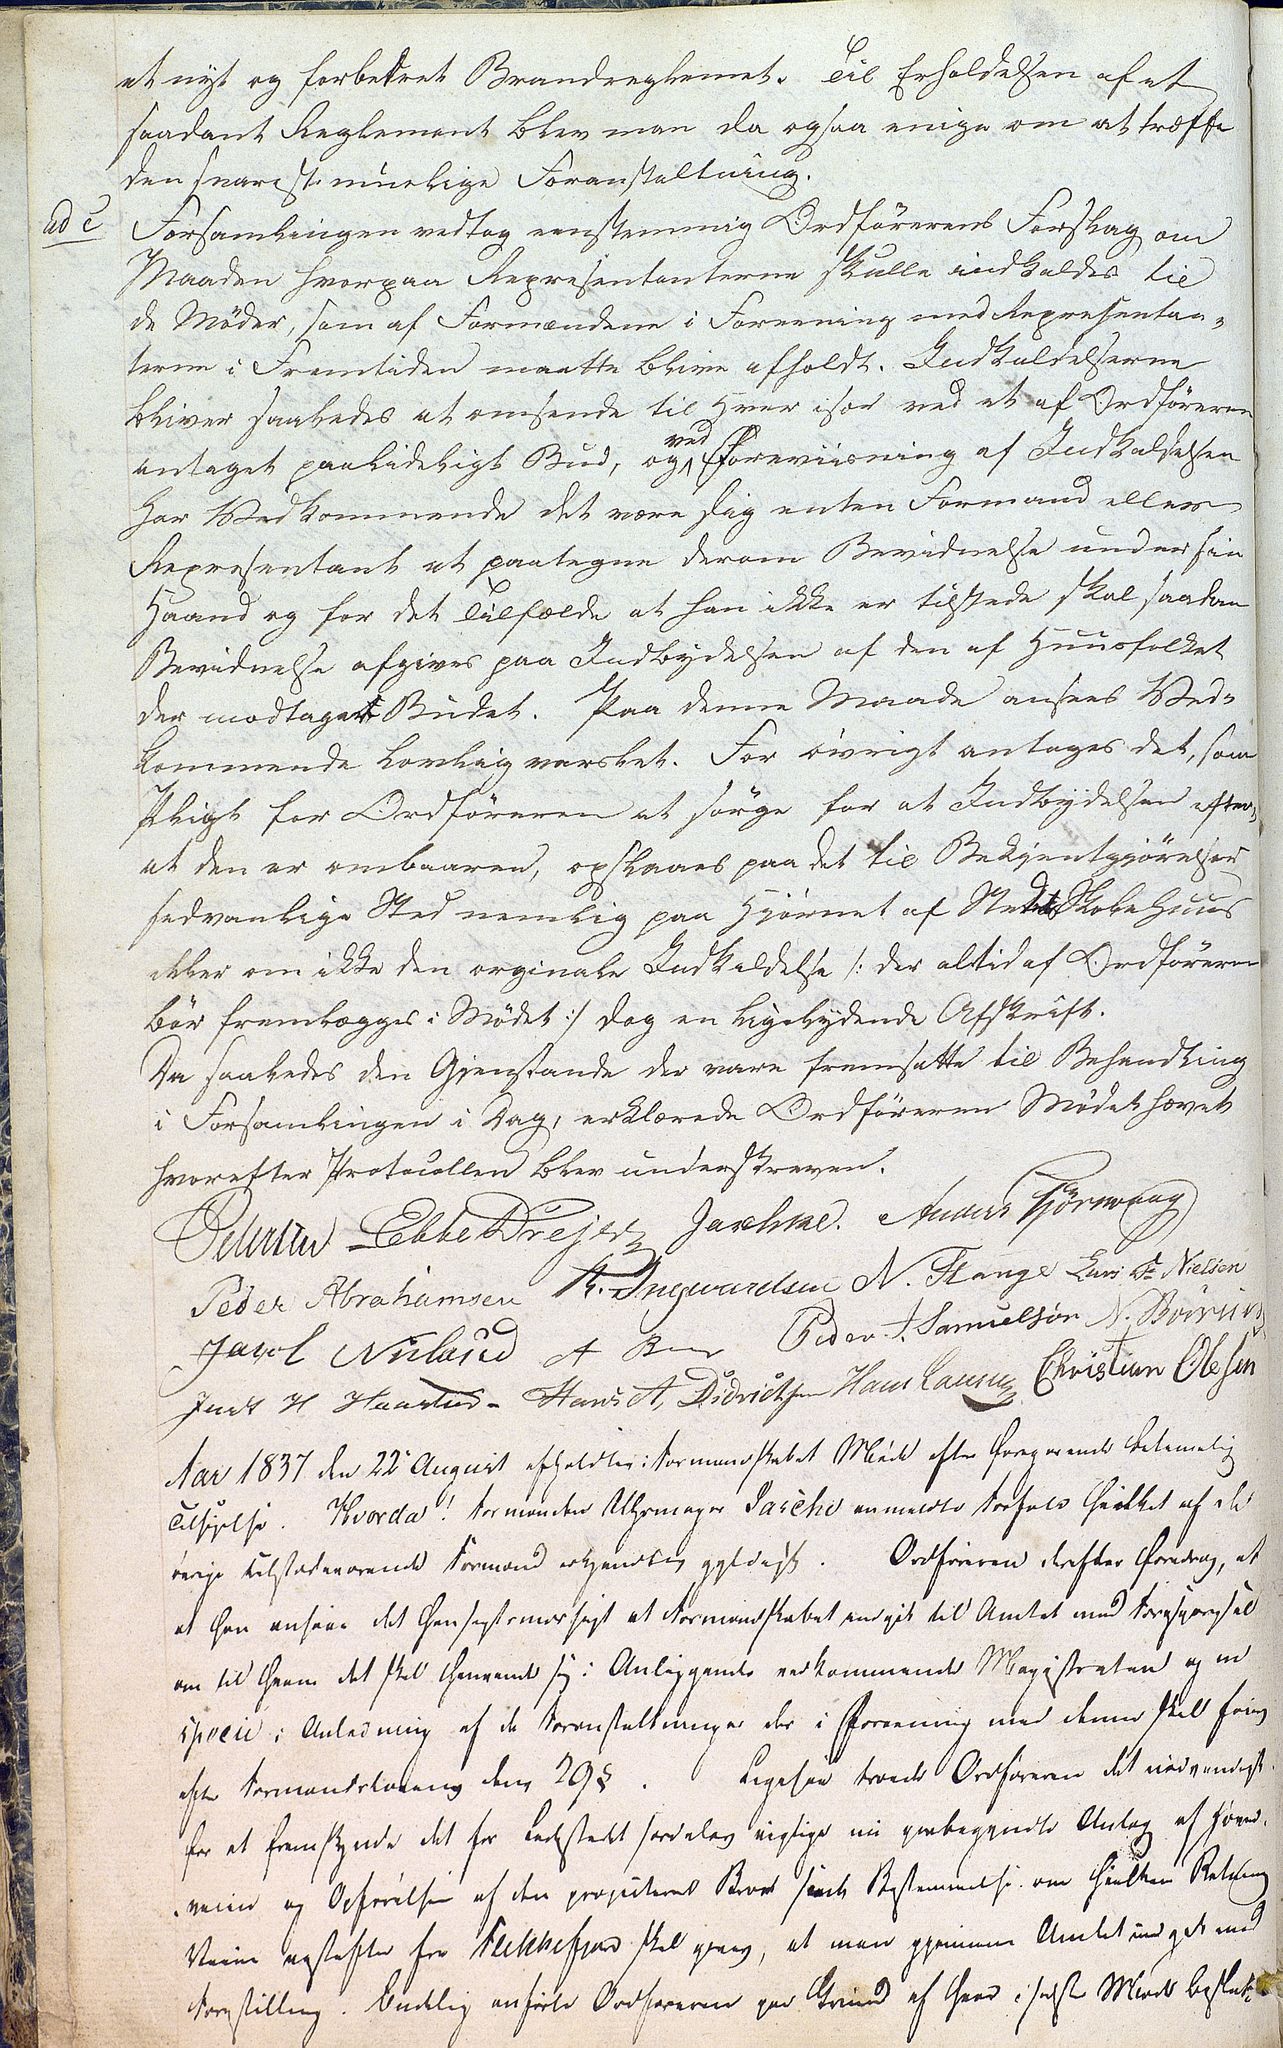 et nyt og forbedret Brandreglement. Til Erholdelsen af et
saadant Reglement blev man da ogsaa enige om at træffe
den snarest muelige Foranstaltning.
ad C Forsamlingen vedtog eenstemmig Ordførerens Forslag om
Maaden hvorpaa Repræsentanterne skulle indkaldes til
de Møder, som af Formændene i Foreening med Repræsentan-
terne i Fremtiden maatte blive afholdt. Indkaldelserne
bliver saaledes at omsende til Hver især ved et af Ordføreren
antaget paalideligt Bud, og ved Foreviisning af Indkaldelsen
har Vedkommende det være sig enten Formand eller
Representant at paategne derom Bevidnelse under sin
Haand og for det Tilfælde at han ikke er tilstede skal saadan
Bevidnelse afgives paa Indbydelsen af den af Huusfolket
der modtager Budet. Paa denne Maade ansees Ved-
kommende lovlig varslet. For øvrigt antages det, som
Pligt for Ordføreren at sørge for at Indbydelsen efter,
at den er ombaaren, opslaaes paa det til Bekjentgjørelser
sedvanlige Sted nemlig paa Hjørnet af Stedets Skole Huus
eller om ikke den orginale Indkaldelse /: der altid af Ordføreren
bør fremlægges i Mødet :/ dog en ligelydende Afskrift.
Da saaledes den Gjenstande der vare fremsatte til Behandling
i Forsamlingen i Dag, erklærede Ordføreren Mødet hævet
hvorefter Protocollen blev underskreven.
Petersen Ebbe Drejer Jaschke. Anders Tjørsvaag
Peder Abrahamsen R. Ingwardsen N. Stange Lars Nielsen
Jacob Nuland A Beer Peder A. Samuelsøn N. Børrisen
H Haaelid Hans A, Didrichsen Hans Larsen Christian Olesen
Aar 1837 den 22de August afholdtes i Formandskabet Møde efter foregaaende betimelig
Tilsigelse. Hvorda! Formanden Uhrmager Jaschke anmeldte Forfald hvilket af de
øvrige tilstedeværende Formænd erkjendtes gyldigt. Ordføreren derefter foredrog, at
at han ansaae det hensigtsmæssigt at Formandskabet indgik til Amtet med Forespørgsel
om til hvem det skal henvende sig i Anliggende vedkommende Magistraten og in
specie i Anledning af de Foranstaltninger der i Forening med denne skal foies
efter Formandslovens dens 29 §. Ligesaa troede Ordføreren det nødvendigt
for at fremskynde det for Ladestedet særdeles vigtige nu paabegyndte Anlæg af Hoved-
veien og Opførelsen af den projecterede Broe samt Bestemmelse om hvilken Retning
Veien østefter fra Flekkefjord skal gives, at man gjennem Amtet indgik med
Forestilling. Endelig anførte Ordføreren paa Grund af hvad i sidste Møde beslut-